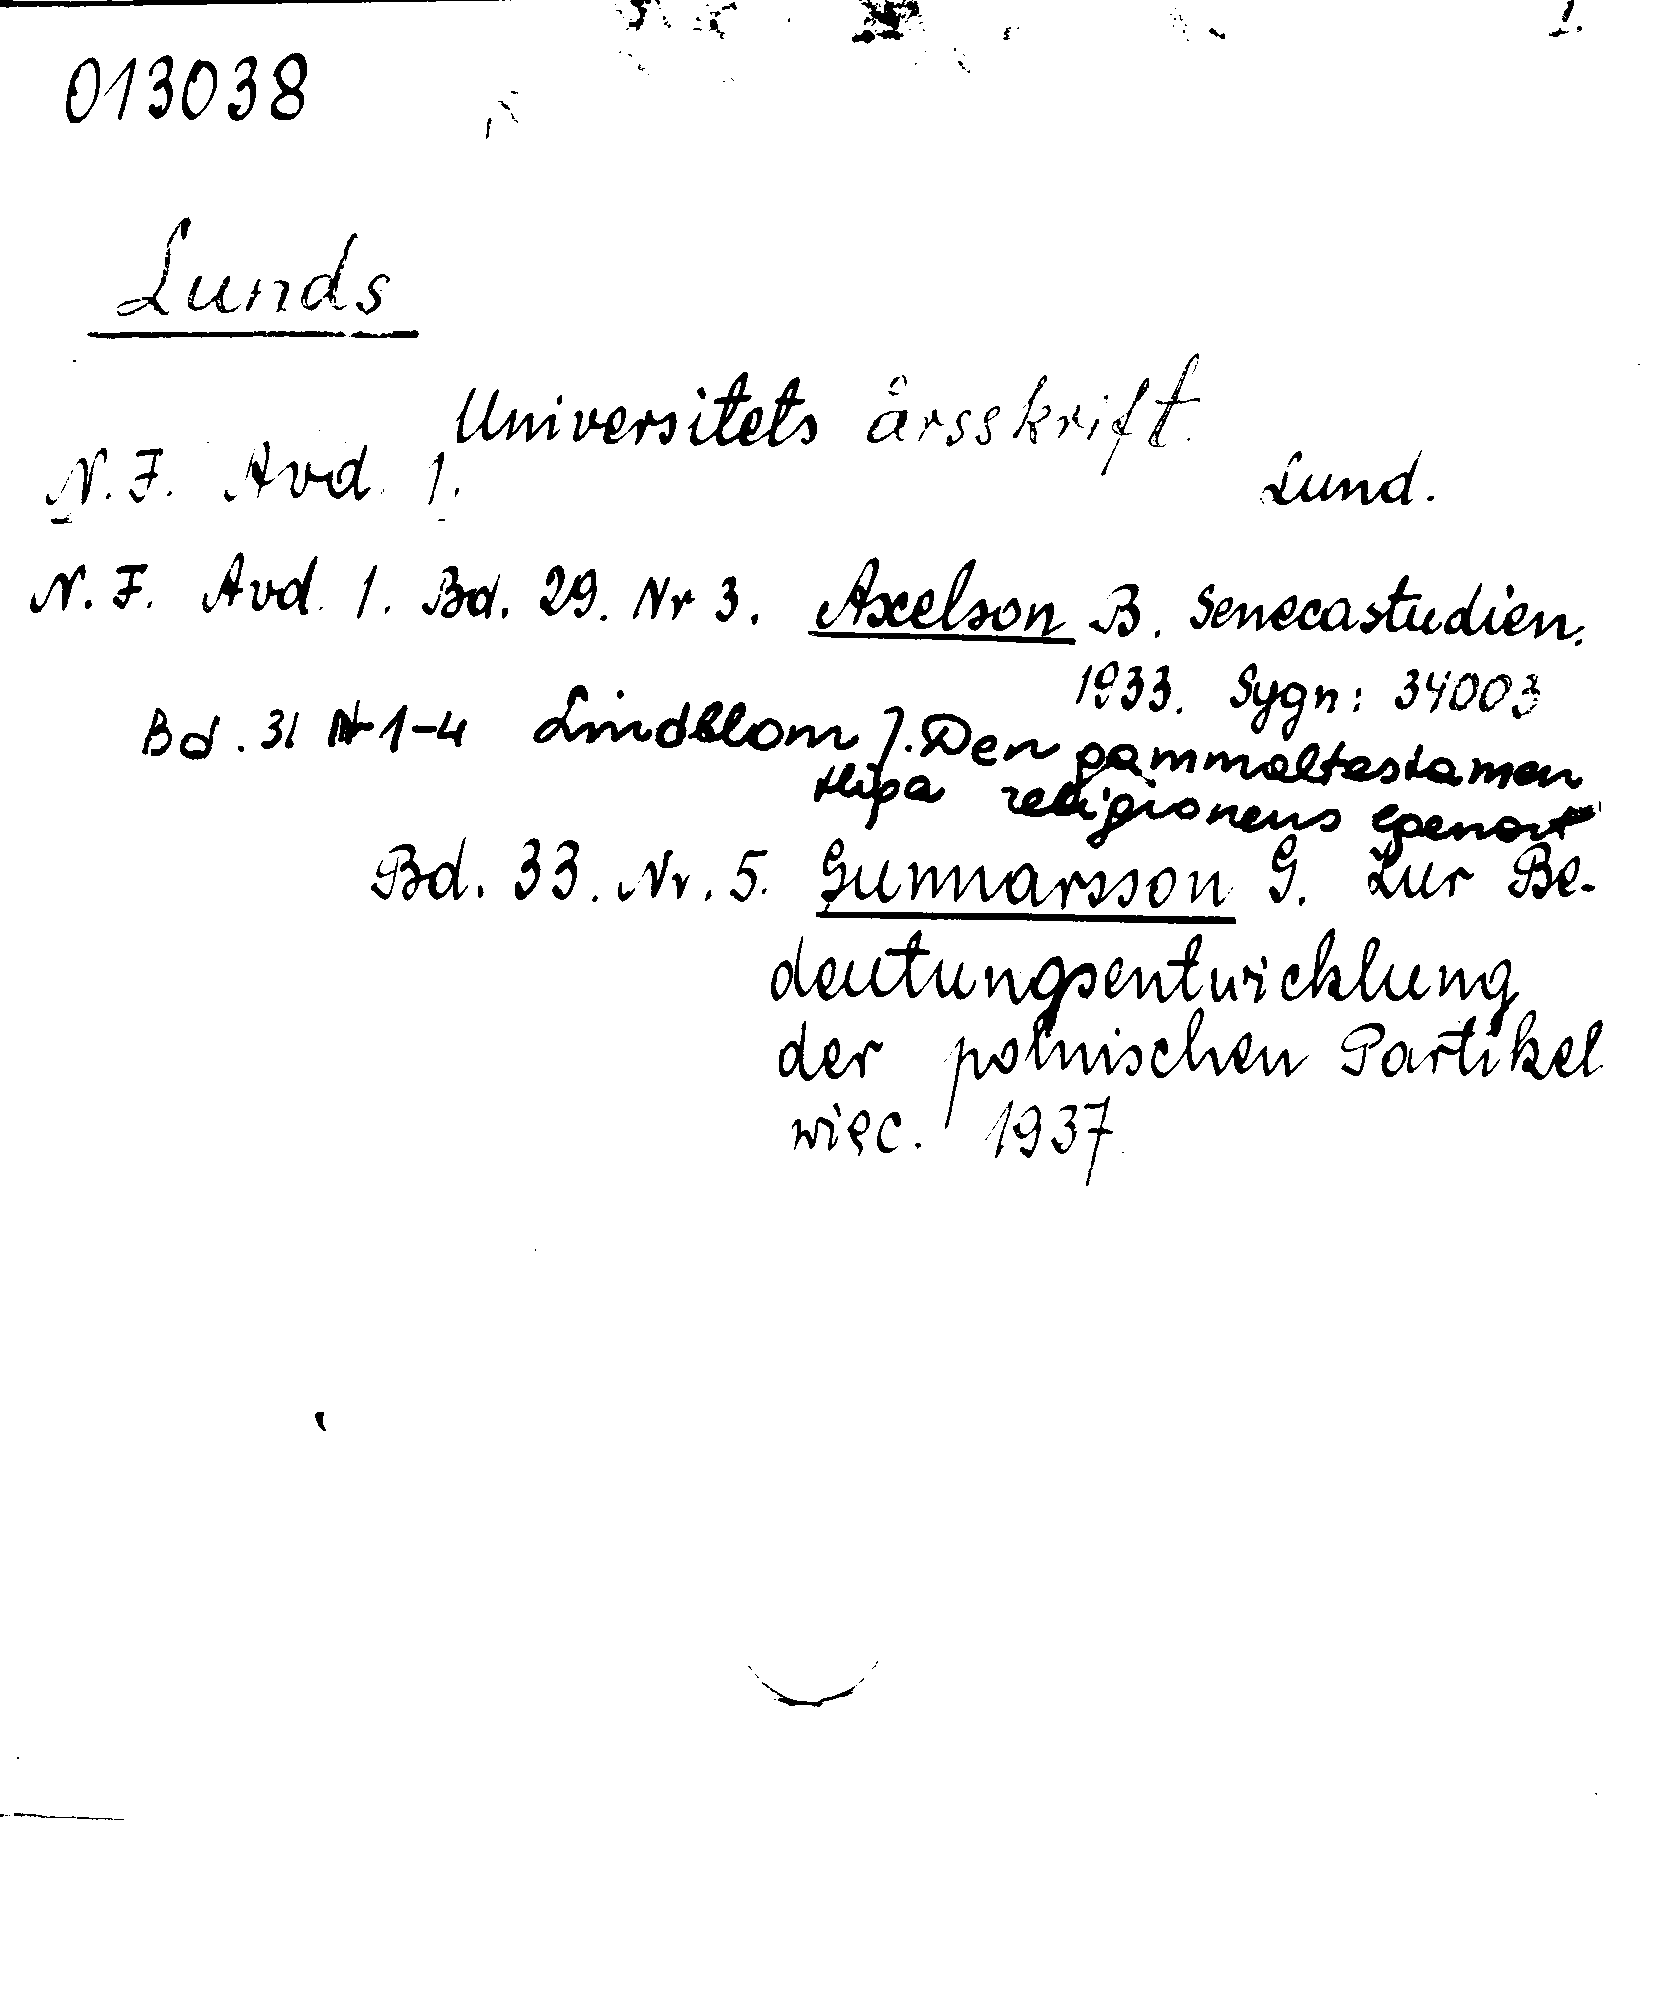 1.
013038
Lunds
Universitets årsskrift.
N.F. Avd. 1. Lund.
N.F. Avd. 1. Bd. 29. Nr 3. Axelson B. Senecastudien.
1933. Sygn: 34003
Bd. 31 Nr 1-4 Lindblom J. Den gammaltestamen
tliga religionens egenart
Bd. 33. Nr. 5. Gunnarsson G. Zur Be-
deutungsentwicklung
der polnischen Partikel
więc. 1937